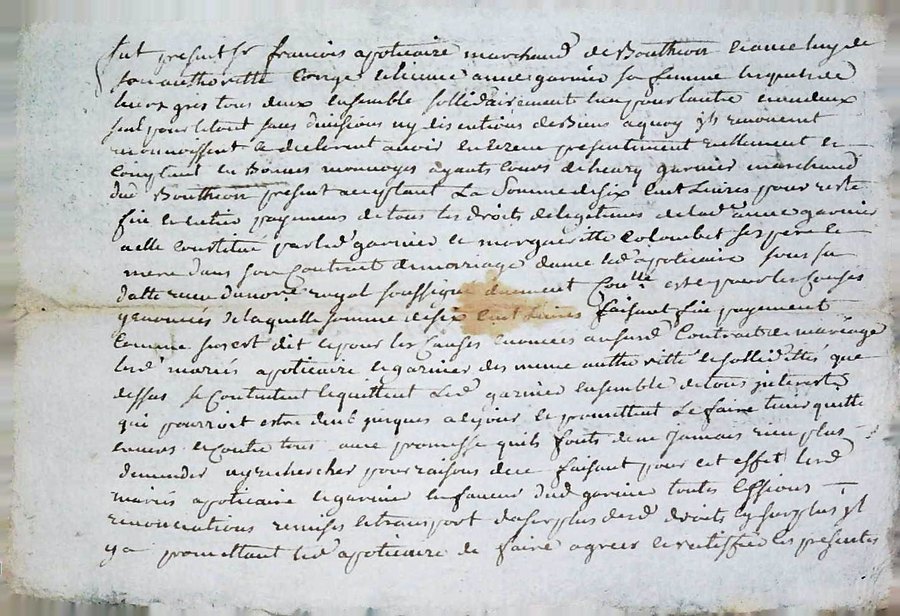 fut present Sr francois apoticaire marchand de Bouthion licance luy de
son authoritte conge et licance anne garnier sa femme lesquels de
leurs gres tous deux ensemble sollidairement lun pour lautre un deux
seul pour le tout sans divisions ny disentions de Biens a quoy ils renoncent
reconnoissent et declarent avoir eu et receu presentement reellement et
comptent en Bonnes monnoyes ayants cours de henry garnier marchand
dud Bouthion present acceptant La Somme de six cent Livres pour reste
fin et entier payement de tous les droits de legitimes de lad anne garnier
a elle constitue par led garnier et margueritte Colombet ses pere et
mere dans son Contrait de mariage dance led apoticaire sous sa
datte receu du no.re royal soussigne duement Con.lle est pour les Causes
y enoncées de laquelle somme de six cent Livres faisant fin payement
comme sus est dit et pour les Causes enoncees au susd Contrait de mariage
lesd mariés apoticaire et garnier des meme authoritté et sollidittés que
dessus se Contentent et quittent led garnier ensemble de tous interests
qui pourroit estre deub jusques a ce jour et promettent Le faire tenir quitte
envers et contre tous avec promesse quils fonts de ne jamais rien plus
demander ny rechercher pour raisons de ce faisant pour cet effet lesd
mariés apoticaire et garnier en faveur dud garnier toutes Cessions
renonciations remises et transport du surplus desd droits sy surplus yl
y a promettant led apoticaire de faire agreer et rattiffier les presentes